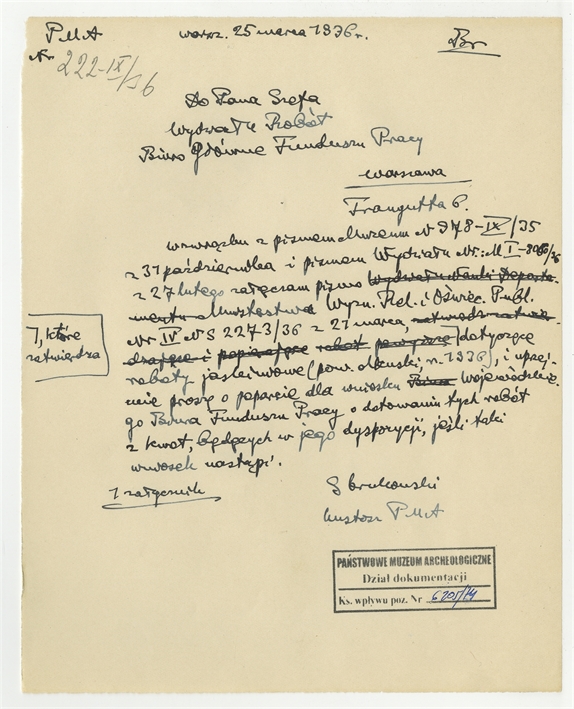 PMA
warsz. 25 marca 1936 r.
Br
Nr
222-IX/36
Do Pana Szefa
Wydziału Robót
Biuro Główne Funduszu Pracy
Warszawa
Traugutta 6.
W związku z pismem Muzeum N 978-IX/35
z 31 października i pismem Wydziału Nr: M I-
z 27 lutego załączam pismo Wydziału Nauki Departa-
mentu Ministerstwa Wyzn. Rel. i Oświec. Publ.
Nr IV N S 2273/36 z 21 marca,
7, które
zatwierdza
i popierające robót powyższe dotyczące
roboty jaskiniowe (pow. olkuski, r. 1936), i uprzej-
mie proszę o poparcie dla wniosku Biura Wojewódzkie-
go Biura Funduszu Pracy o dotowaniu tych robót
z kwot, będących w jego dyspozycji, jeśli taki
wniosek nastąpi.
1 załącznik
S Krukowski
kustosz PMA
PAŃSTWOWE MUZEUM ARCHEOLOGICZNE
Dział dokumentacji
Ks. wpływu poz. Nr 6205/14